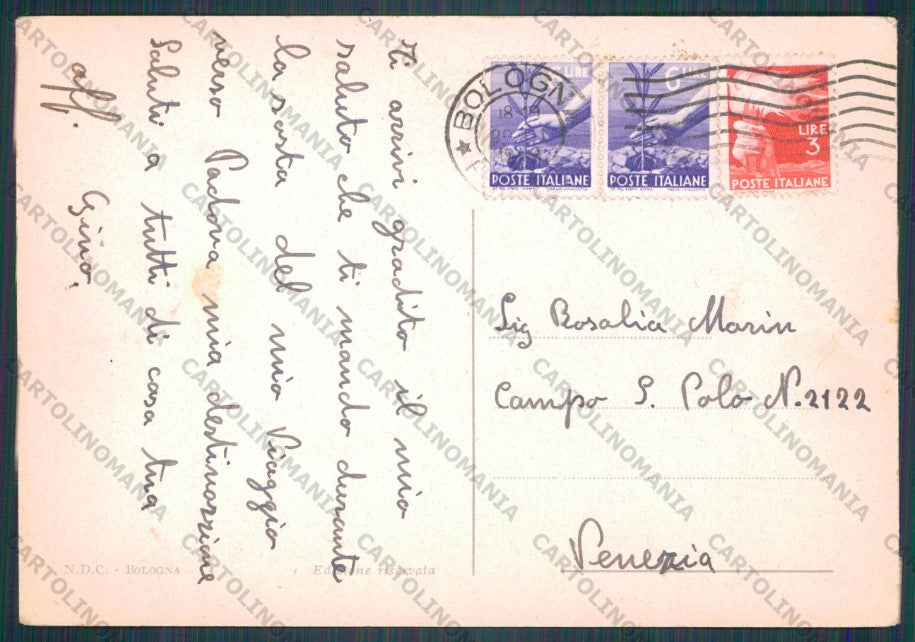 Ti arrivi gradito il mio
saluto che ti mando durante
la sosta del mio Viaggio
verso Padova mia destinazione
Saluti a tutti di casa tua
aff.
Gino.
BOLOGNA
18-19
LIRE
POSTE ITALIANE
6
POSTE ITALIANE
LIRE
3
POSTE ITALIANE
Sig Rosalia Marin
Campo S. Polo N. 2122
Venezia
N.D.C. - BOLOGNA
Edizione riservata
CARTOLINOMANIA